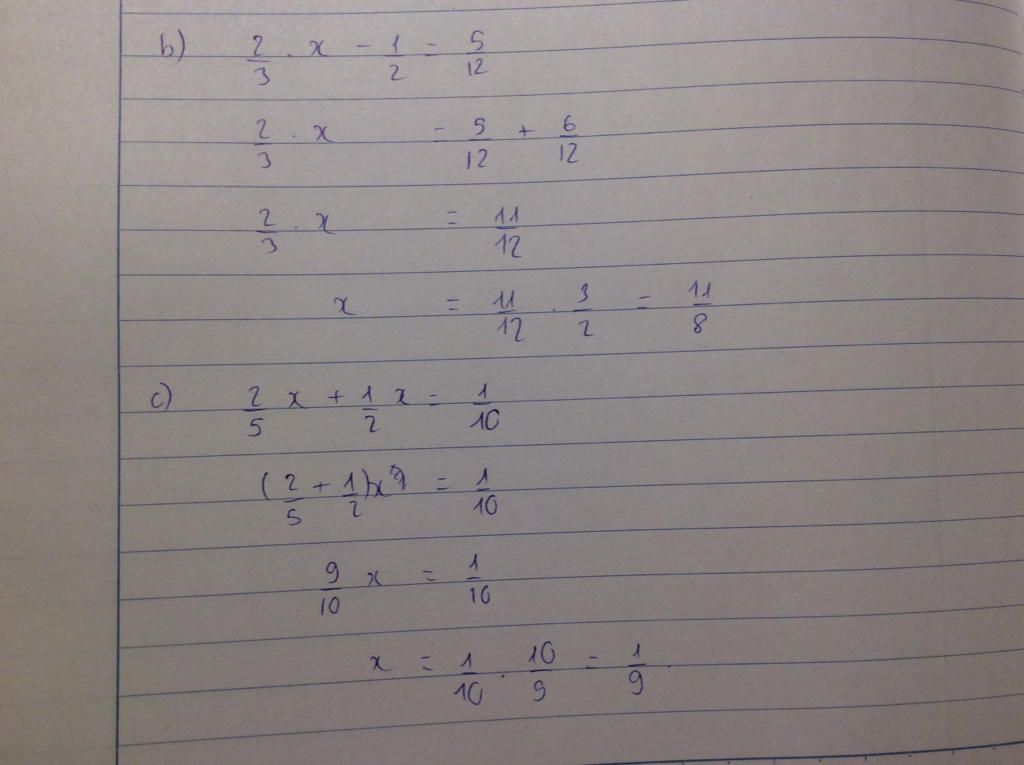 b) 2/3 . x - 1/2 = 5/12
2/3 . x = 5/12 + 6/12
2/3 . x = 11/12
x = 11/12 . 3/2 = 11/8
c) 2/5 x + 1/2 x = 1/10
(2/5 + 1/2)x = 1/10
9/10 x = 1/10
x = 1/10 . 10/9 = 1/9 .